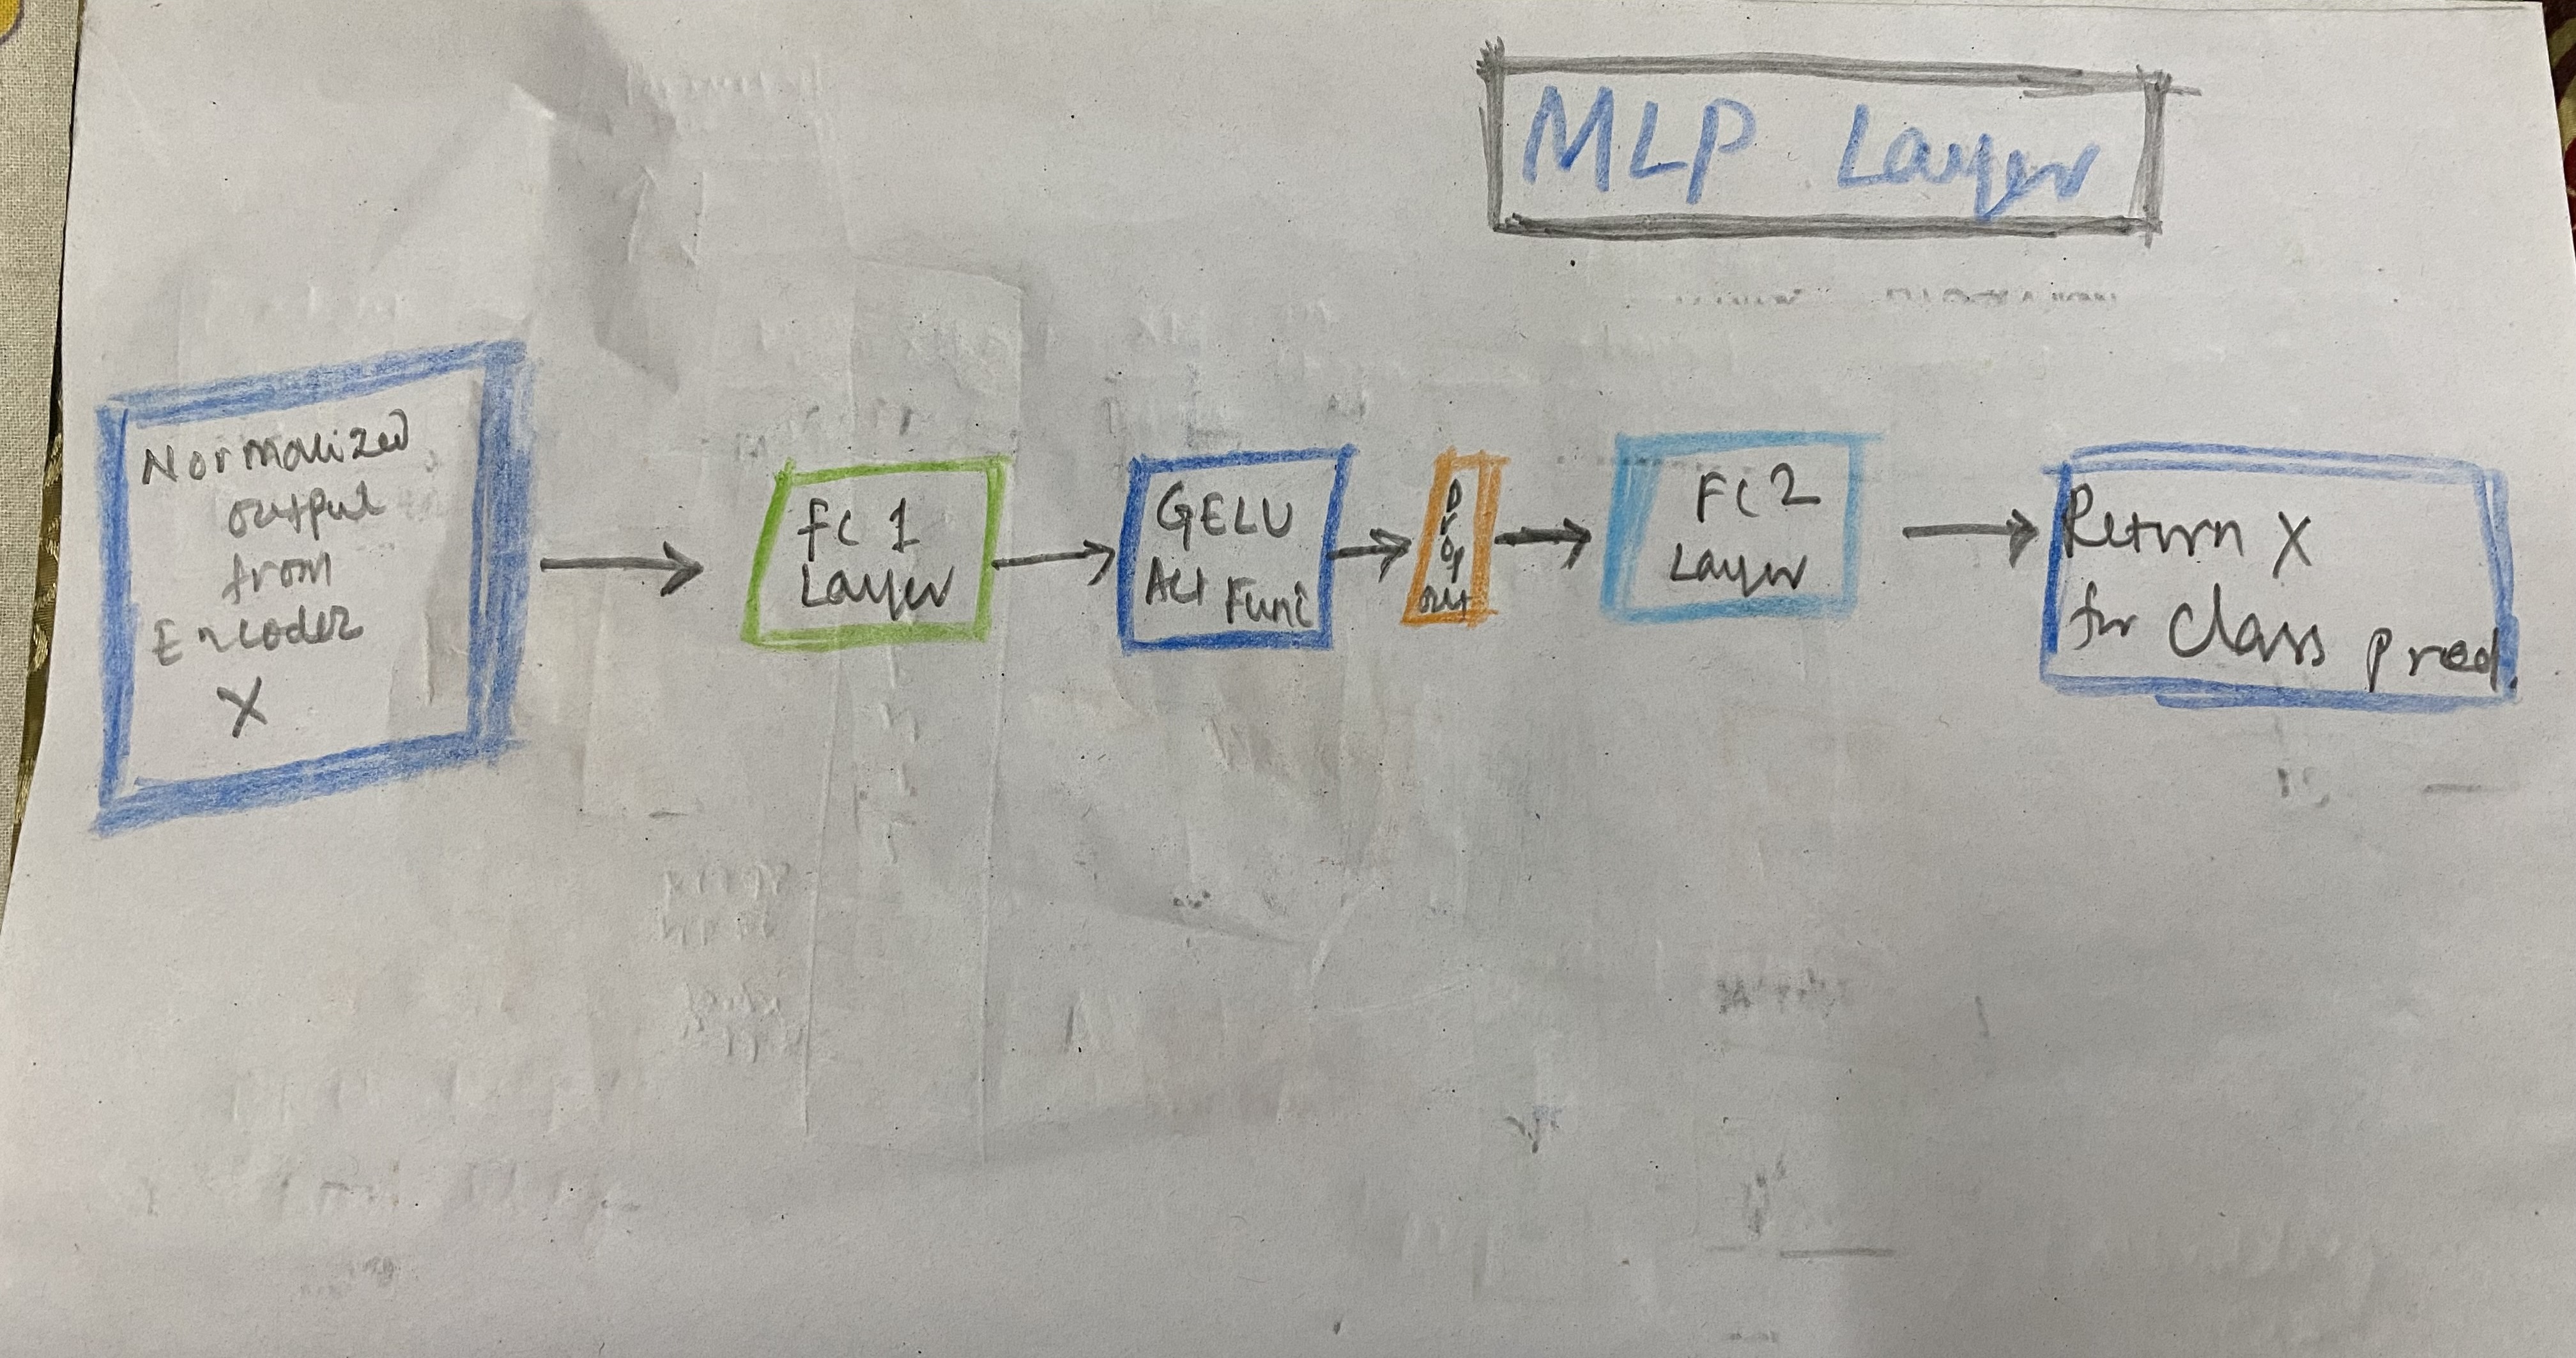 MLP Layer
Normalized
output
from
Encoder
X
FC 1
Layer
GELU
Act Func
Dropout
FC2
Layer
Return X
for Class pred.